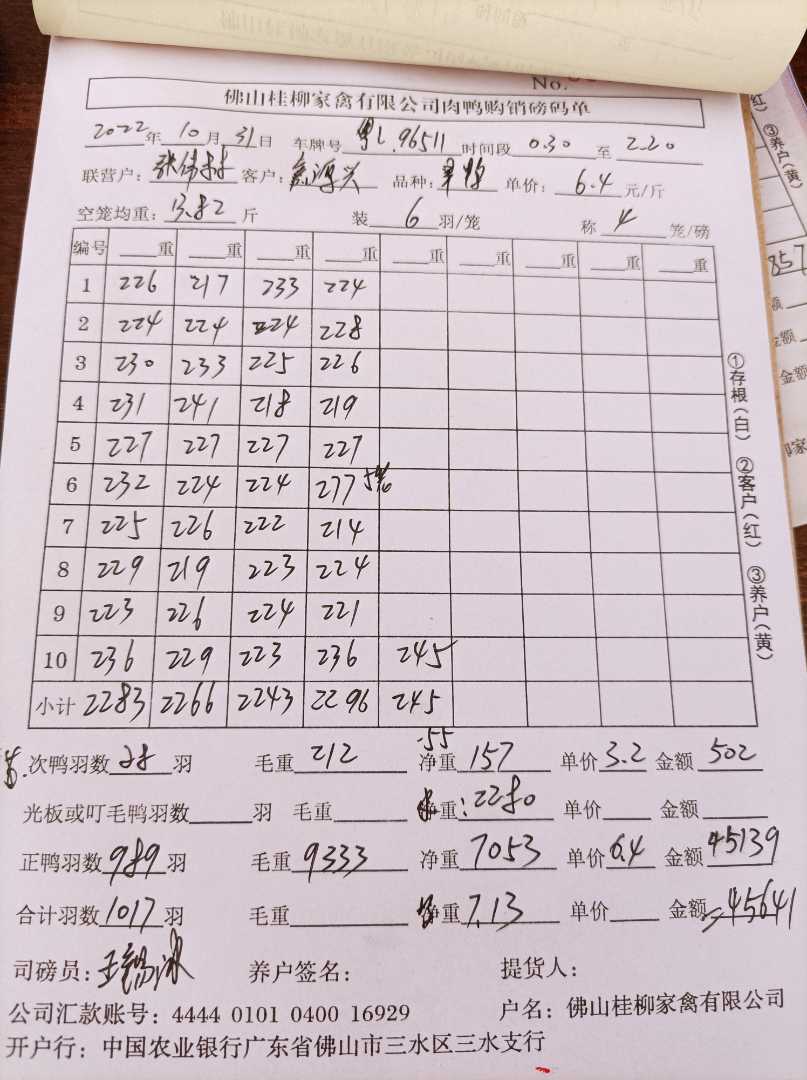 No.
佛山桂柳家禽有限公司肉鸭购销磅码单
2022年10月31日 车牌号 粤L.96511 时间段 0.30 至 2.20
联营户: 张伟林 客户: 品种: 单价: 6.4 元/斤
空笼均重: 13.82 斤 装 6 羽/笼 称 4 笼/磅
编号 重 重 重 重 重 重 重 重 重
1 226 217 233 224
2 224 224 224 228
3 230 233 225 226
4 231 241 218 219
5 227 227 227 227
6 232 224 224 277 5笼
7 225 226 222 214
8 229 219 223 224
9 223 226 224 221
10 236 229 223 236 245
小计 2283 2266 2243 2296 245
次鸭羽数 28 羽 毛重 212 -55 净重 157 单价 3.2 金额 502
光板或叮毛鸭羽数 羽 毛重 重: 2280 单价 金额
正鸭羽数 989 羽 毛重 9333 净重 7053 单价 6.4 金额 45139
合计羽数 1017 羽 毛重 净重 7.13 单价 金额 45641
司磅员: 王锡冰 养户签名: 提货人:
公司汇款账号: 4444 0101 0400 16929 户名: 佛山桂柳家禽有限公司
开户行: 中国农业银行广东省佛山市三水区三水支行
①存根(白) ②客户(红) ③养户(黄)
③养户(黄)
857
金额